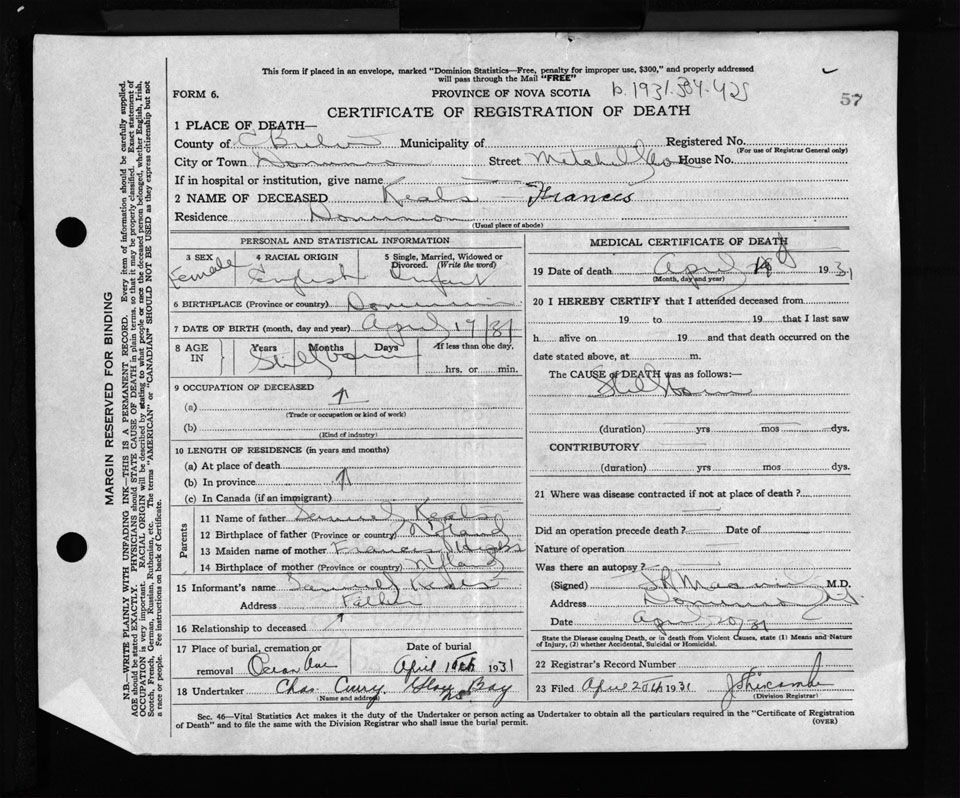 This form if placed in an envelope, marked "Dominion Statistics—Free, penalty for improper use, $300," and properly addressed
will pass through the Mail "FREE"
FORM 6. PROVINCE OF NOVA SCOTIA b. 1931-334-425
57
CERTIFICATE OF REGISTRATION OF DEATH
1 PLACE OF DEATH—
County of C Breton Municipality of Registered No.
(For use of Registrar General only)
City or Town Dominion Street House No.
If in hospital or institution, give name
2 NAME OF DECEASED Keals - Frances
Residence Dominion
(Usual place of abode)
PERSONAL AND STATISTICAL INFORMATION
3 SEX 4 RACIAL ORIGIN 5 Single, Married, Widowed or Divorced. (Write the word)
Female English Infant
6 BIRTHPLACE (Province or country) Dominion
7 DATE OF BIRTH (month, day and year) April 19/31
8 AGE IN Years Months Days If less than one day,
Stillborn hrs. or min.
9 OCCUPATION OF DECEASED
(a)
(Trade or occupation or kind of work)
(b)
(Kind of industry)
10 LENGTH OF RESIDENCE (in years and months)
(a) At place of death
(b) In province
(c) In Canada (if an immigrant)
Parents
11 Name of father Samuel Keals
12 Birthplace of father (Province or country) Nfland
13 Maiden name of mother Frances Higgs
14 Birthplace of mother (Province or country) Nfland
15 Informant's name Samuel Keals
Address Father
16 Relationship to deceased
17 Place of burial, cremation or Date of burial
removal Ocean Ave April 1931
18 Undertaker Chas Curry. Glace Bay
NS.
Name and address)
MEDICAL CERTIFICATE OF DEATH
19 Date of death April 19 1931
(Month, day and year)
20 I HEREBY CERTIFY that I attended deceased from
19 to 19 that I last saw
h alive on 19 and that death occurred on the
date stated above, at m.
The CAUSE of DEATH was as follows:—
Stillborn
(duration) yrs mos dys.
CONTRIBUTORY
(duration) yrs mos dys.
21 Where was disease contracted if not at place of death?
Did an operation precede death? Date of
Nature of operation
Was there an autopsy?
(Signed) M.D.
Address Dominion
Date April 20/31
State the Disease causing Death, or in death from Violent Causes, state (1) Means and Nature
of Injury, (2) whether Accidental, Suicidal or Homicidal.
22 Registrar's Record Number
23 Filed April 20th 1931
(Division Registrar)
Sec. 46—Vital Statistics Act makes it the duty of the Undertaker or person acting as Undertaker to obtain all the particulars required in the "Certificate of Registration
of Death" and to file the same with the Division Registrar who shall issue the burial permit. (OVER)
MARGIN RESERVED FOR BINDING
N.B.—WRITE PLAINLY WITH UNFADING INK—THIS IS A PERMANENT RECORD. Every item of information should be carefully supplied.
AGE should be stated EXACTLY. PHYSICIANS should STATE CAUSE OF DEATH in plain terms, so that it may be properly classified. Exact statement of
OCCUPATION is very important. RACIAL ORIGIN will be described by stating to what people or race the deceased person belonged, whether English, Irish,
Scotch, French, German, Russian, Ruthenian, etc. The terms "AMERICAN" or "CANADIAN" SHOULD NOT BE USED as they express citizenship but not
a race or people. Fee instructions on back of Certificate.